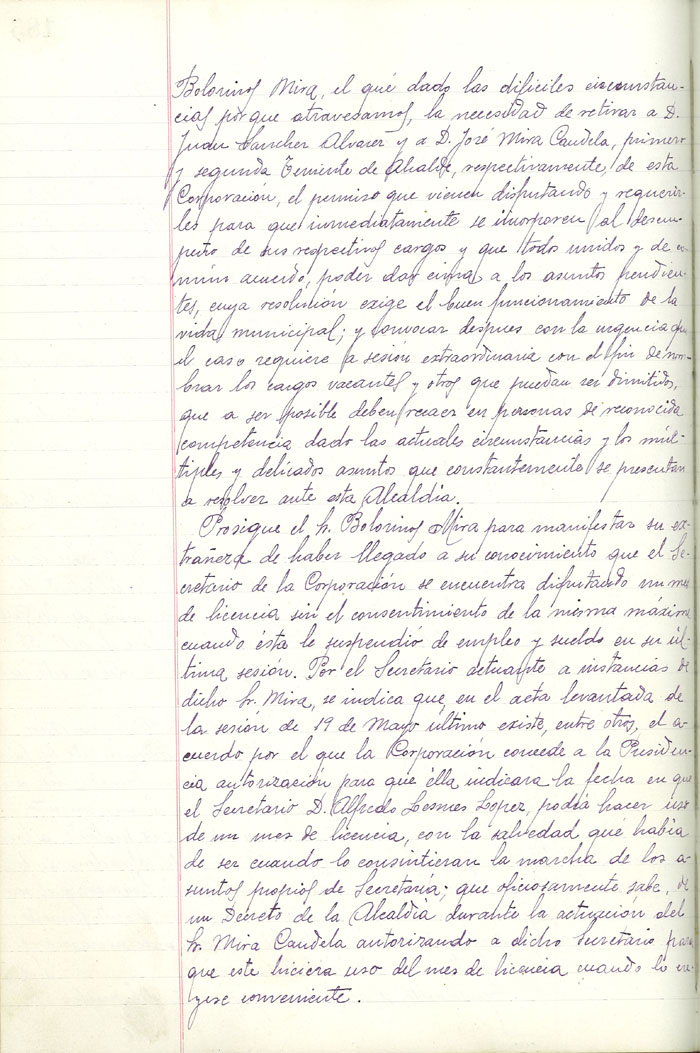 Bolorinos Mira, el qué dado las dificiles circunstan-
cias por que atravesamos, la necesidad de retirar a D.
Juan Sanchez Alvarez y a D. José Mira Candela, primero
y segundo Teniente de Alcalde, respectivamente, de esta
Corporación, el permiso que vienen disfrutando y requerir-
les para que inmediatamente se incorporen al desem-
peño de sus respectivos cargos y que todos unidos y de co-
mún acuerdo, poder dar cima a los asuntos pendien-
tes, cuya resolución exige el buen funcionamiento de la
vida municipal; y convocar despues con la urgencia que
el caso requiere a sesión extraordinaria con el fin de nom-
brar los cargos vacantes y otros que puedan ser dimitidos,
que a ser posible deben recaer en personas de reconocida
competencia dado las actuales circunstancias y los múl-
tiples y delicados asuntos que constantemente se presentan
a resolver ante esta Alcaldía.
Prosigue el Sr. Bolorinos Mira para manifestar su ex-
trañeza de haber llegado a su conocimiento que el Se-
cretario de la Corporación se encuentra disfrutando un mes
de licencia sin el consentimiento de la misma máxime
cuando ésta le suspendio de empleo y sueldo en su úl-
tima sesión. Por el Secretario actuante a instancias de
dicho Sr. Mira, se indica que, en el acta levantada de
la sesión de 19 de Mayo último existe, entre otros, el a-
cuerdo por el que la Corporación concede a la Presiden-
cia autorización para que élla indicara la fecha en que
el Secretario D. Alfredo Lesmes Lopez, podía hacer uso
de un mes de licencia, con la salvedad qué habia
de ser cuando lo consintieran la marcha de los a-
suntos propios de Secretaría; que oficiosamente sabe, de
un Decreto de la Alcaldía durante la actuación del
Sr. Mira Candela autorizando a dicho Secretario para
que este hiciera uso del mes de licencia cuando lo cre-
yese conveniente.